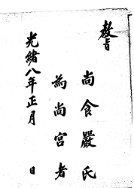 尚食嚴氏
為尚宮者
光緖八年正月　日